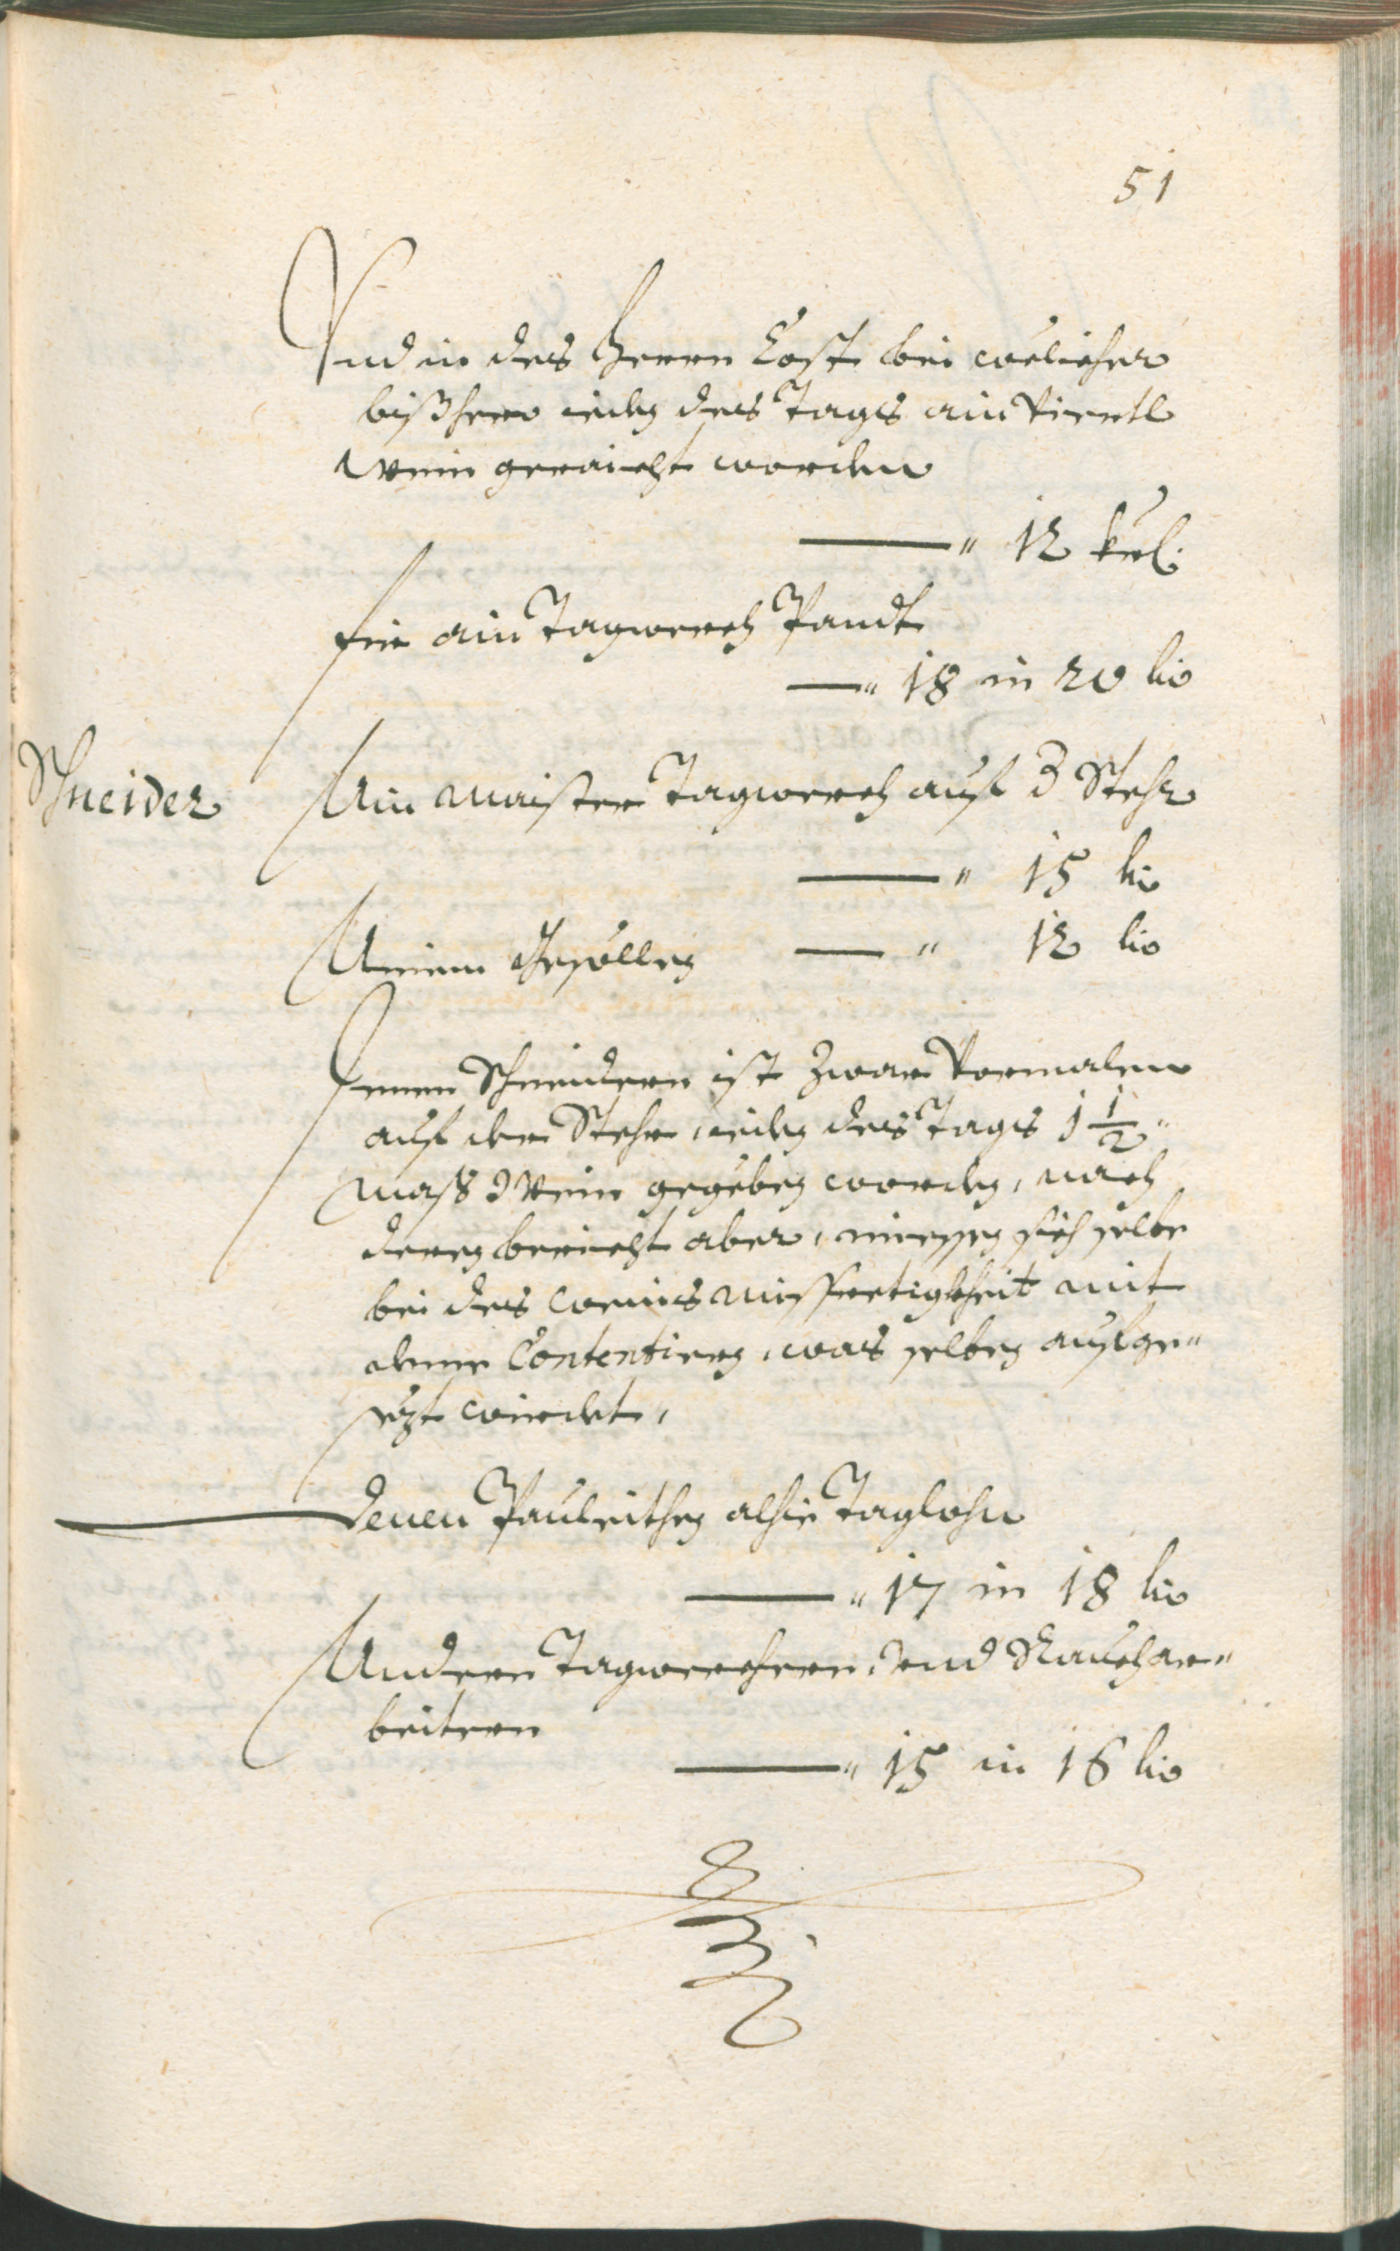 51
Vnd in des Herrn Cost bei welicher
bißhero ieden des Tags ain Viertl
Wein geraicht worden
— " 12 krl.
für ain Tagwerch Pandt
— " 18 in 20 kr
Schneider
Ain Maister Tagwerch auf 3 Stehr
— " 15 kr
Ainem Gesöllen — " 12 kr
Jenen Schneidern ist zwar Vormalen
auf der Stehr, ieden des Tags 1 1/2 "
Mass Wein gegeben worden, nach
deren bericht aber, miessen sich selbe
bei des Weins Missfertigkheit mit
deme Contentiern, was selben aufge"
sezt wirdet,
Denen Pauleithen alhie Taglohn
— " 17 in 18 kr
Andern Tagwerchern, Vnd Rauchar"
beitern
— " 15 in 16 kr